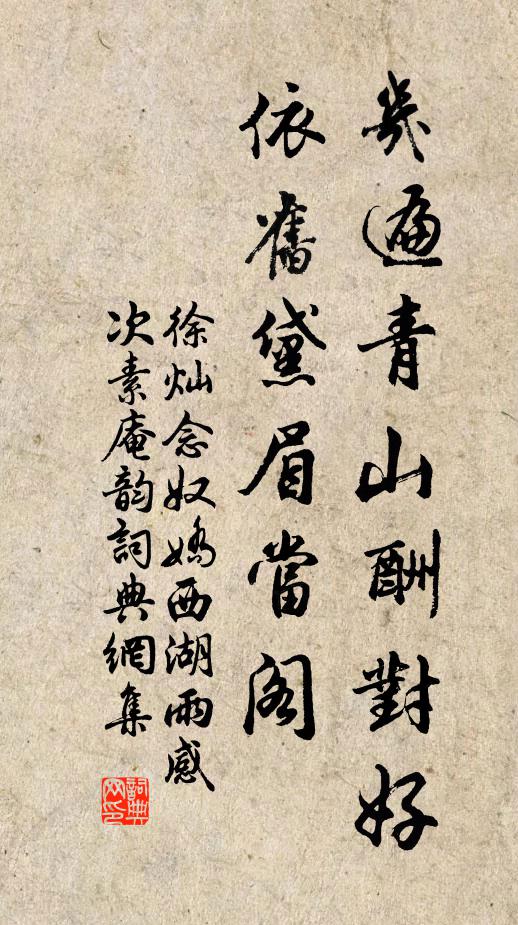 幾遍青山酬對好
依舊黛眉當閣
徐灿念奴嬌西湖雨感
次素庵韵詞典網集
詞典
网印